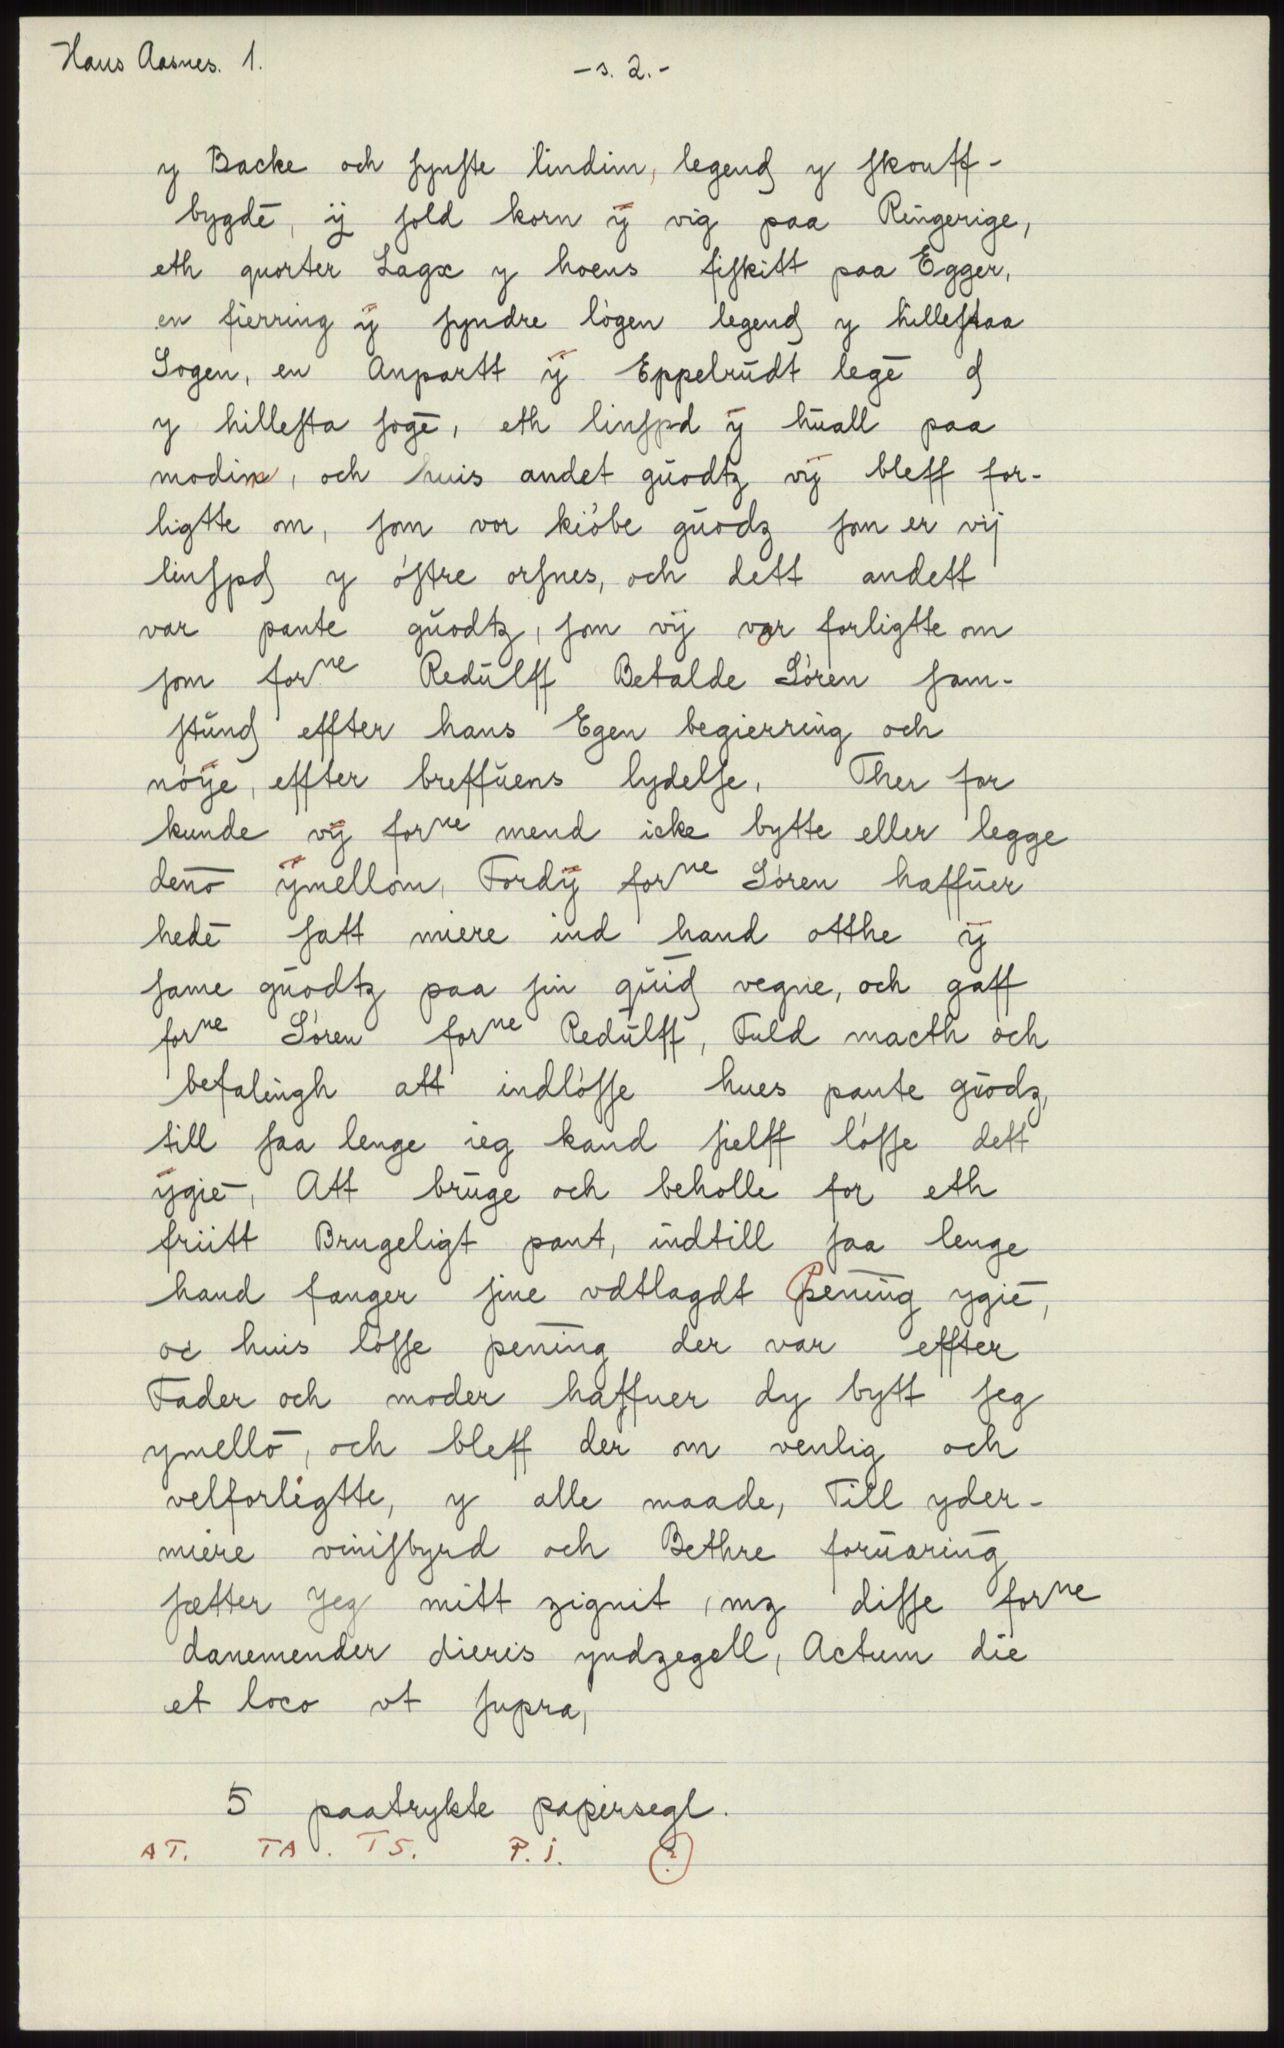 Hans Aasnes. 1.
- s. 2. -
y Backe och synste lindim, legend y skouff-
bygdē, ij sold korn ÿ vig paa Ringerige,
eth quorter Lagx y hoens fiskitt paa Egger,
en fierring ÿ syndre lógen legend y hillestaa
Sogen, en Anpartt ÿ Eppelrŭdt legē d
y hillesta sogē, eth linspd ÿ hŭall paa
modim, och huis andet gŭodtz vÿ bleff for-
ligtte om, som vor kióbe gŭodz som er vij
linspd y óstre orsnes, och dett andett
var pante gŭodtz, som vÿ var forligtte om
som forne Redŭlff Betalde Sóren sam-
stŭnd effter hans Egen begierring och
nóÿe, effter breffŭens lydelse. Ther for
kunde vÿ forne mend icke bytte eller legge
denō ÿmellom, Fordÿ forne Sóren haffŭer
hedē satt miere ind hand otthe ÿ
same gŭodtz paa sin qŭid vegne, och gaff
forne Sóren forne Redŭlff, Fuld macth och
befalingh att indlósse hues pante gŭodz,
till saa lenge ieg kand sielff lósse dett
ÿgiē, Att brŭge och beholle for eth
friitt Brugeligt pant, indtill saa lenge
hand fanger sine vdtlagdt Pening ygiē,
oc huis lósse pening der var effter
Fader och moder haffuer dy bytt seg
ymellō, och bleff der om venlig och
velforligtte, y alle maade, Till yder-
miere vinisbyrd och Bethre forŭaring
sætter Jeg mitt zignit, mz disse forne
danemender dieris yndzegell, Actum die
et loco vt supra,
5 paatrykte papirsegl.
AT. TA. TS. P. J. ?